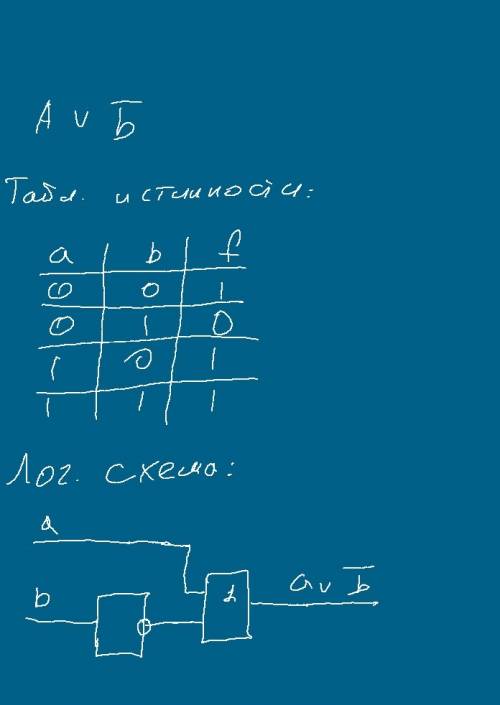 A ∨ b̅
Табл. истинности:
a b f
0 0 1
0 1 0
1 0 1
1 1 1
Лог. схема:
a
b
1
a ∨ b̅